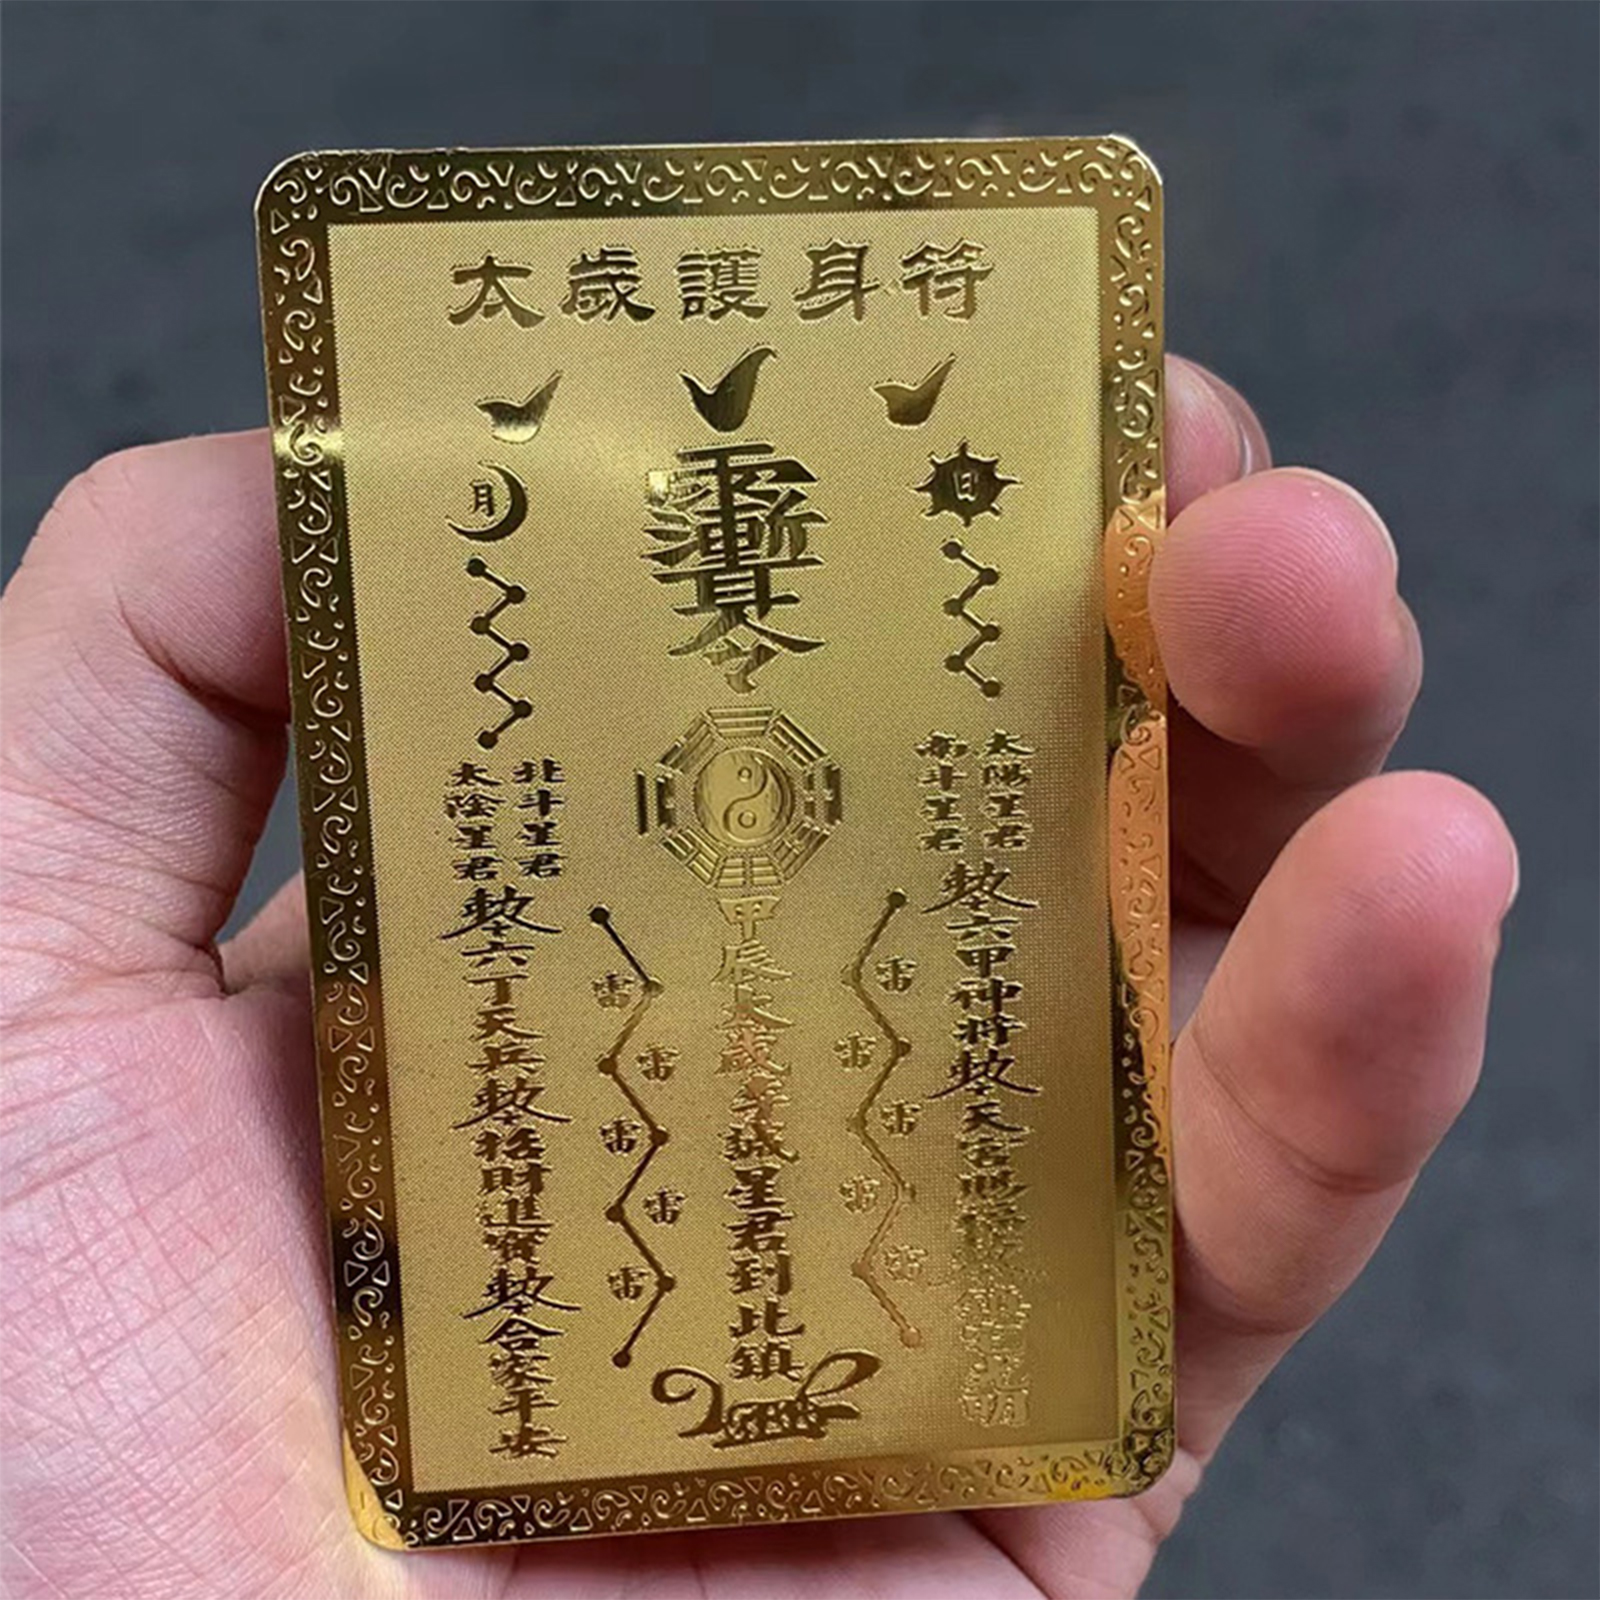 太歲護身符
日
太陽星君
南斗星君
勅六甲神將勅天官賜福
雷
雷
雷
雷
雷
甲辰太歲李誠星君到此鎮
雷
雷
雷
雷
雷
月
北斗星君
太陰星君
勅六丁天兵勅招財進寶勅合家平安